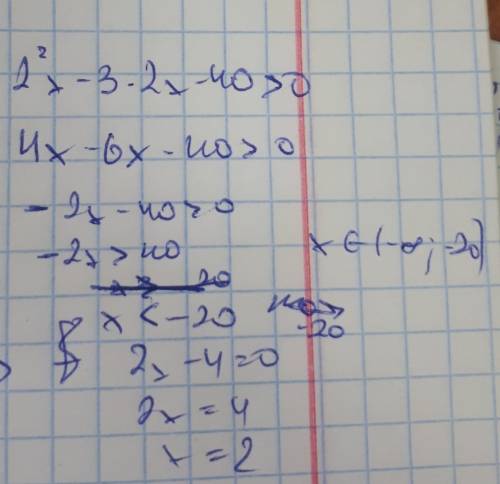 2²x - 3 · 2x - 40 > 0
4x - 6x - 40 > 0
- 2x - 40 > 0
- 2x > 40
x < -20
x ∈ (-∞; -20)
-20
2x - 4 = 0
2x = 4
x = 2